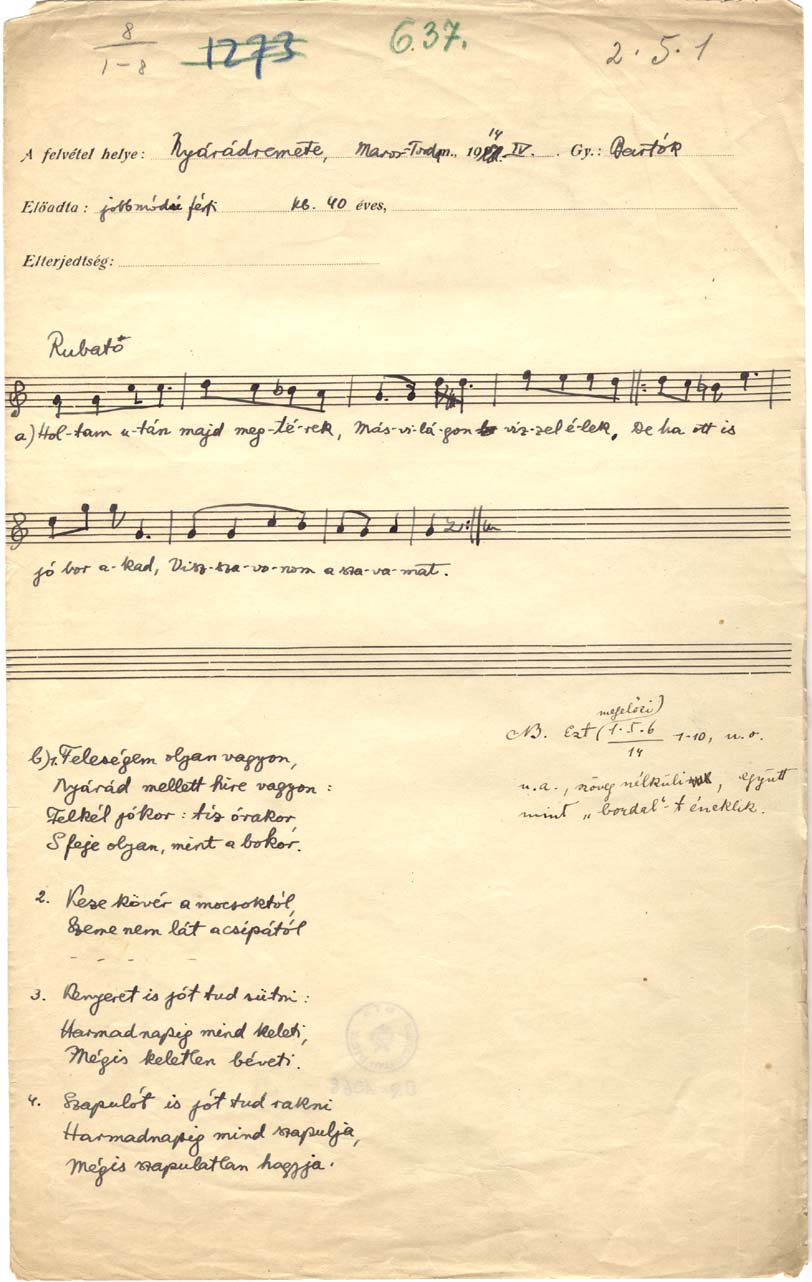 8
1-8
1273
637.
2.5.1
A felvétel helye: Nyárádremete, Maros-Torda m., 1914.IV. Gy.: Bartók
Előadta: jobbmódú férfi kb. 40 éves,
Elterjedtség:
Rubato
a) Hol-tam u-tán majd meg-té-rek, Más-vi-lá-gon viz-zel é-lek, De ha ott is
jó bor a-kad, Visz-sza-vo-nom a sza-va-mat.
NB. Ezt (megelőzi)
1.5.6
14
1-10, u.o.
u.a., szöveg nélküli, együtt
mint „bordal"-t éneklik.
b) 1. Feleségem olyan vagyon,
Nyárád mellett híre vagyon:
Felkél jókor: tíz órakor
S feje olyan, mint a bokor.
2. Keze kövér a mocsoktól,
Szeme nem lát a csipától
- - - -
3. Kenyeret is jót tud sütni:
Harmadnapig mind keleti,
Mégis keletlen béveti.
4. Szapulót is jót tud rakni
Harmadnapig mind szapulja,
Mégis szapulatlan hagyja.